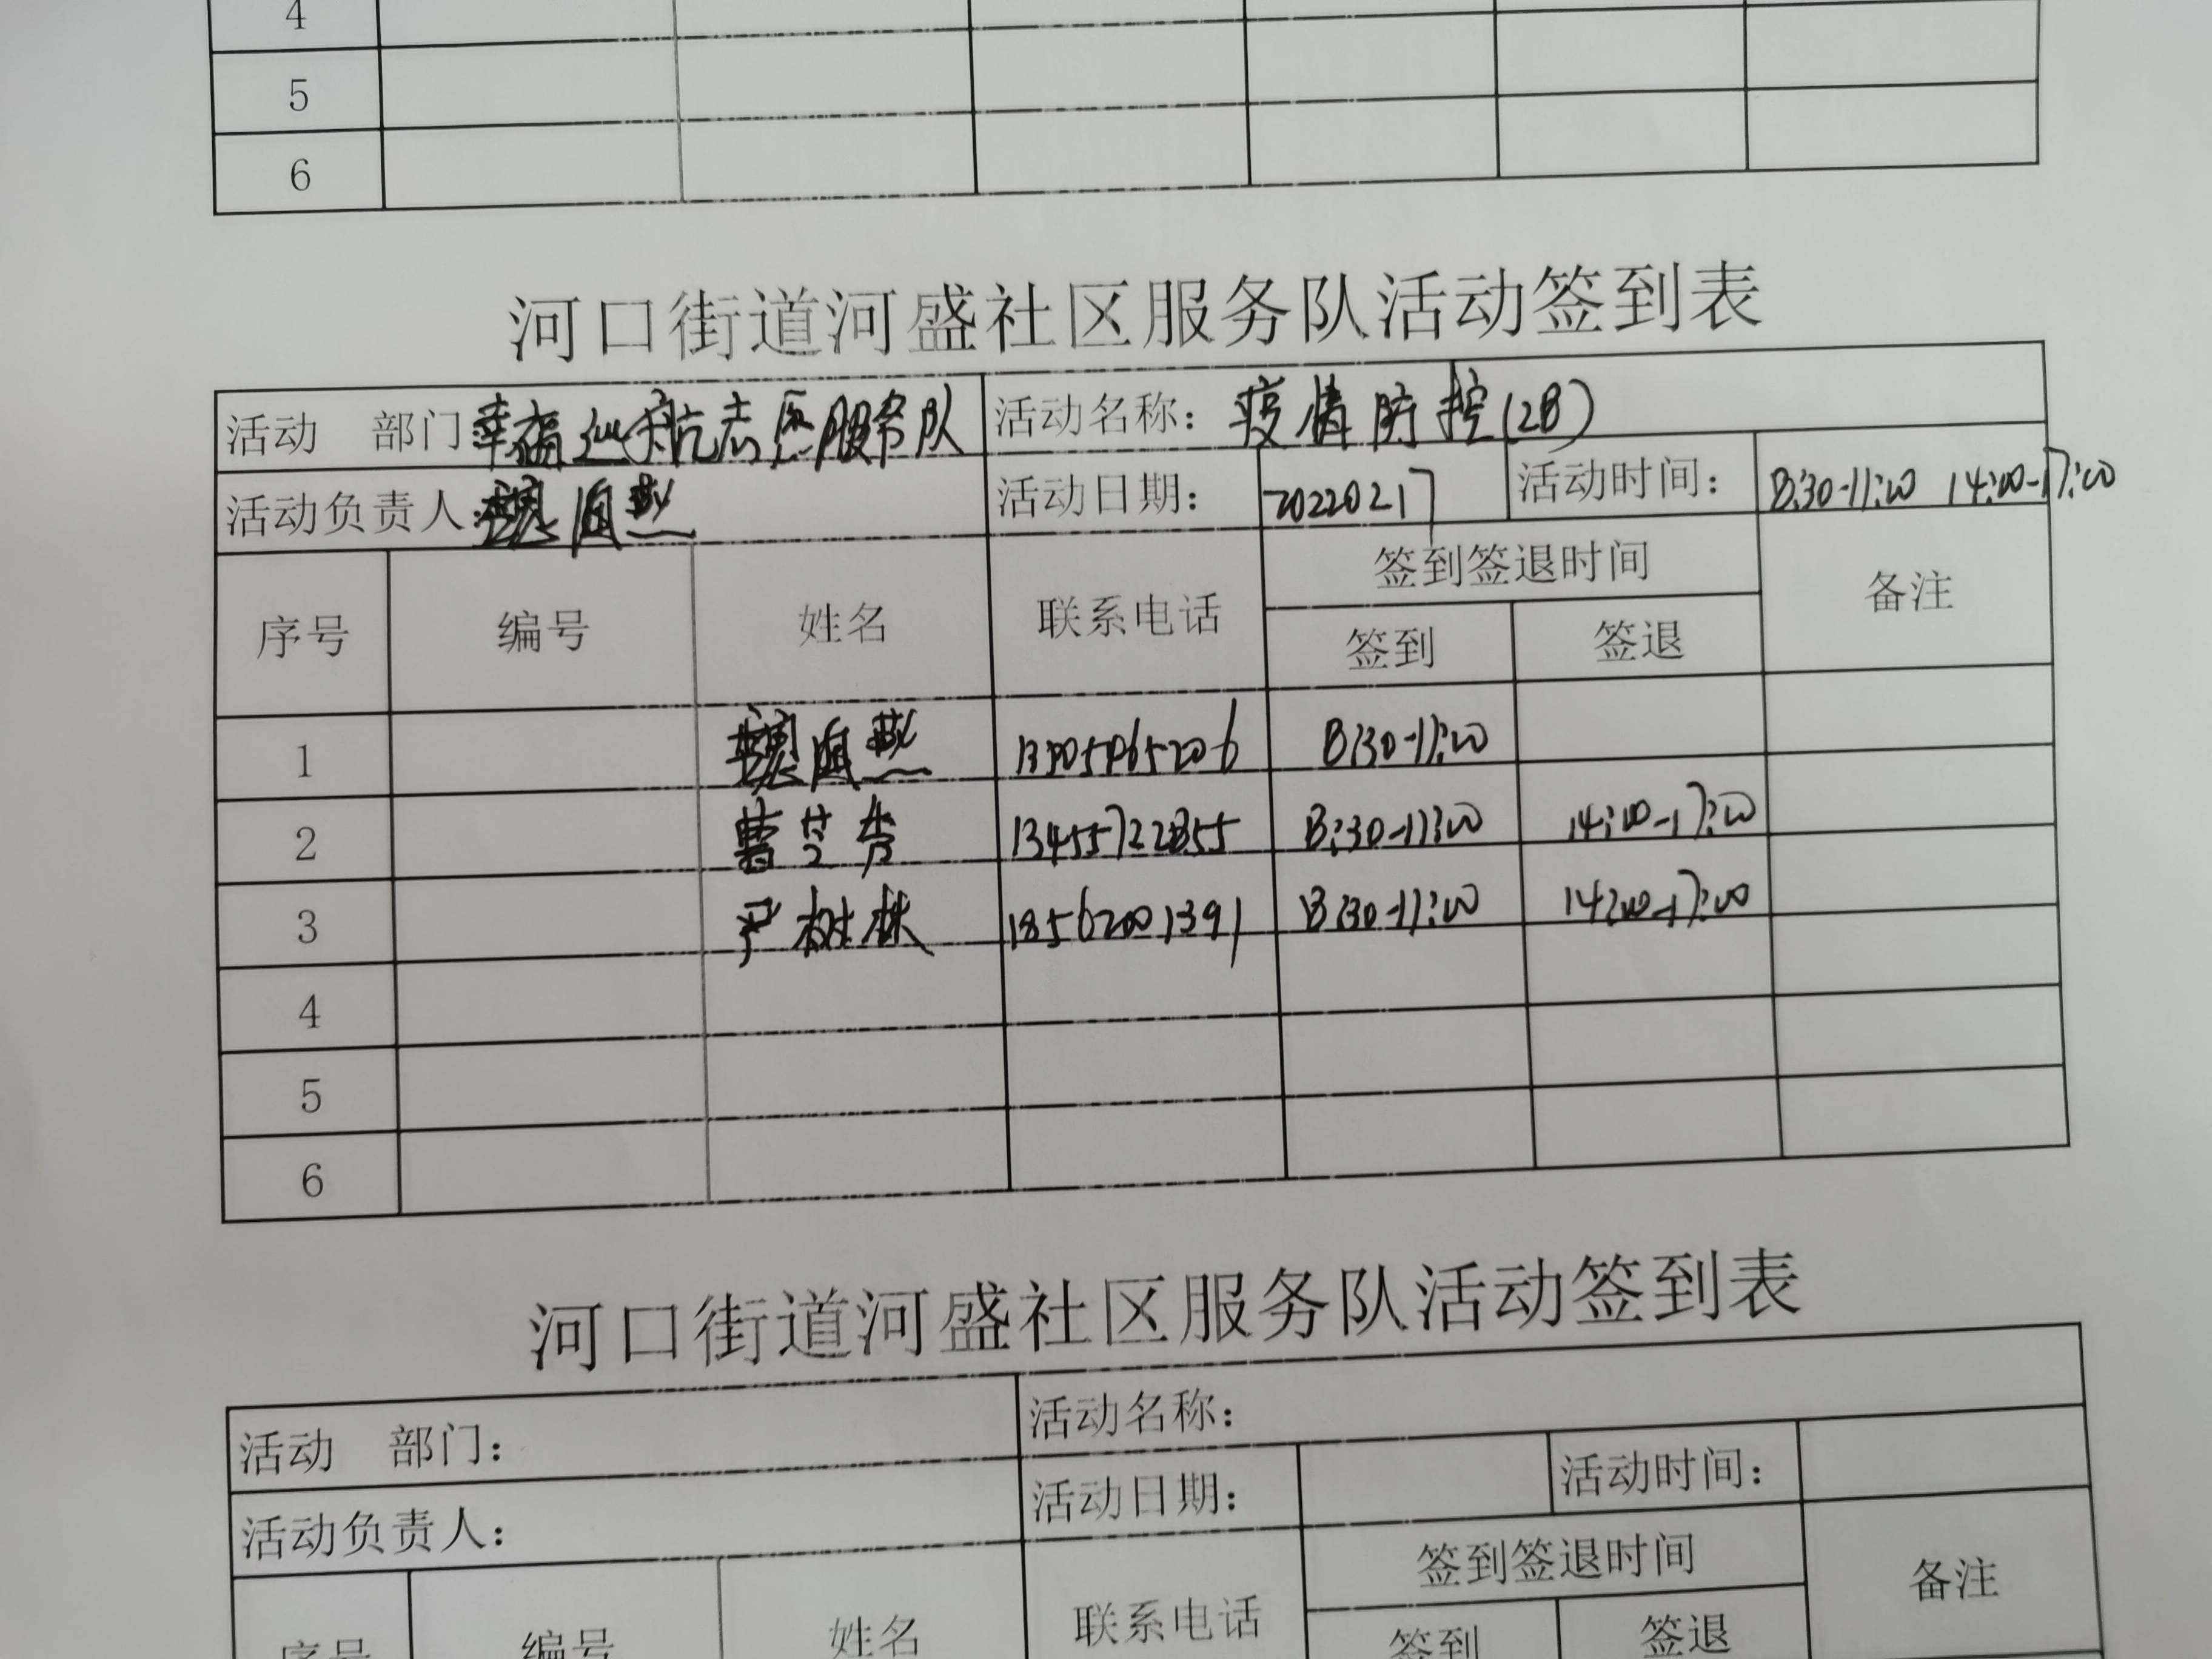 4
5
6
河口街道河盛社区服务队活动签到表
活动 部门 幸福巡航志愿服务队 活动名称：疫情防控(28)
活动负责人： 活动日期： 20220217 活动时间： 8:30-11:00 14:00-17:00
序号 编号 姓名 联系电话 签到签退时间 备注
签到 签退
1 8:30-11:00
2 曹芝芳 13455722855 8:30-11:00 14:00-17:00
3 严树林 18562001391 8:30-11:00 14:00-17:00
4
5
6
河口街道河盛社区服务队活动签到表
活动 部门： 活动名称：
活动负责人： 活动日期： 活动时间：
序号 编号 姓名 联系电话 签到签退时间 备注
签到 签退